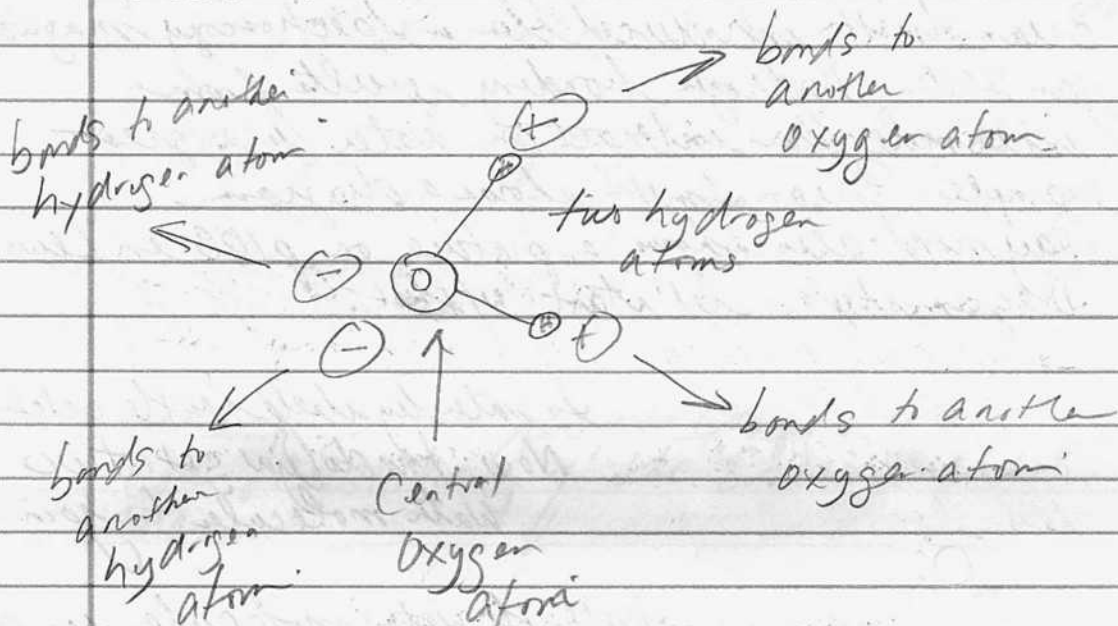 bonds to
another
oxygen atom
+
H
bonds to another
hydrogen atom
two hydrogen
atoms
-
O
H
+
-
bonds to another
oxygen atom
bonds to
another
hydrogen
atom
Central
oxygen
atom